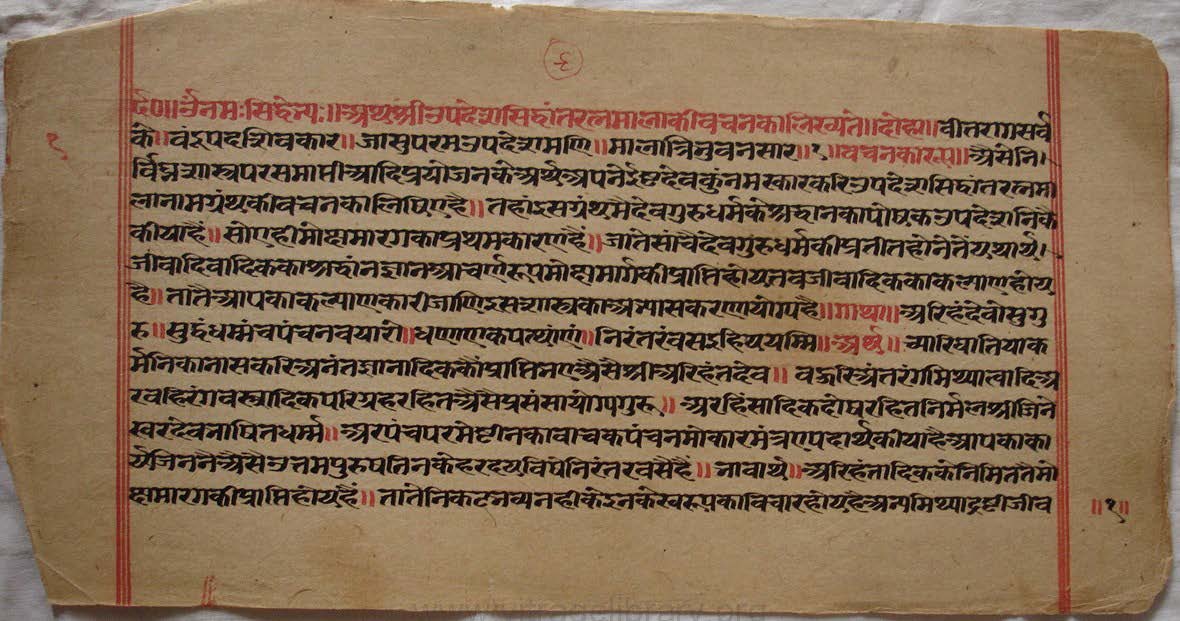 ६
॥ॐनमःसिद्धेभ्यः॥अथश्रीउपदेशसिद्धांतरत्नमालाकीवचनकालिख्यते॥दोहा॥वीतरागसर्व
१
के॥वंदूपदशिवकार॥जासुपरमउपदेशमणि॥मालात्रिभुवनसार॥१॥वचनकारूप॥अैसेनि।
र्विघ्नशास्त्रपरसमाप्तीआदिप्रयोजनकेअर्थअपनेइष्टदेवकुंनमस्कारकरिउपदेशसिद्धांतरत्नमा
लानामग्रंथकीवचनकालिषिएहै॥तहांइसग्रंथमैदेवगुरुधर्मकेश्रद्धानकापोषकउपदेशनिकै
कीयाहैं॥सोएहीमोक्षमारगकाप्रथमकारणहैं॥जातेसांचैदेवगुरुधर्मकीप्रतीतहोनेतेंयथार्थ।
जीवादिवादिककाश्रद्धांनज्ञानआचर्णरूपमोक्षमार्गकीप्राप्तिहोयतवजीवादिककाकल्याणहोय
है॥तातैआपकाकल्याणकारीजाणिइसशास्त्रकाअभ्यासकरणयोग्यहै॥गाथा॥अरिहंदेवोसुगु
रु॥सुद्धंधम्मंचपंचनवयारो॥धणाणकयत्थाणं॥निरंतरंवसइहियययम्मि॥अर्थ॥च्यारिघातियाक
र्मनिकानासकरिअनंतज्ञानादिककौंप्राप्तिभएअैसैश्रीअरिहंतदेव॥वऊरिअंतरंगमिथ्यात्वादिअ
रवहिरंगवस्त्रादिकपरिग्रहरहितअैसैप्रसंसायोग्यगुरू॥अरहिंसादिकदोषरहितनिर्मलश्रीजिने
स्वरदेवभाषितधर्म्म॥अरपंचपरमेष्टीनकावाचकपंचनमोकारमंत्रएपदार्थकीयाहैआपकाका
र्यजिननैअैसैउत्तमपुरुषतिनकेहरदयविषैनिरंतरवसैहैं॥भावार्थ॥अरिहंतादिककेनिमित्ततैमो
क्षमारगकीप्राप्तिहोयहैं॥तातेनिकटभव्यनहीकेइनकेस्वरूपकाविचारहोयहैअन्यमिथ्याद्रष्टीजीव
॥१॥